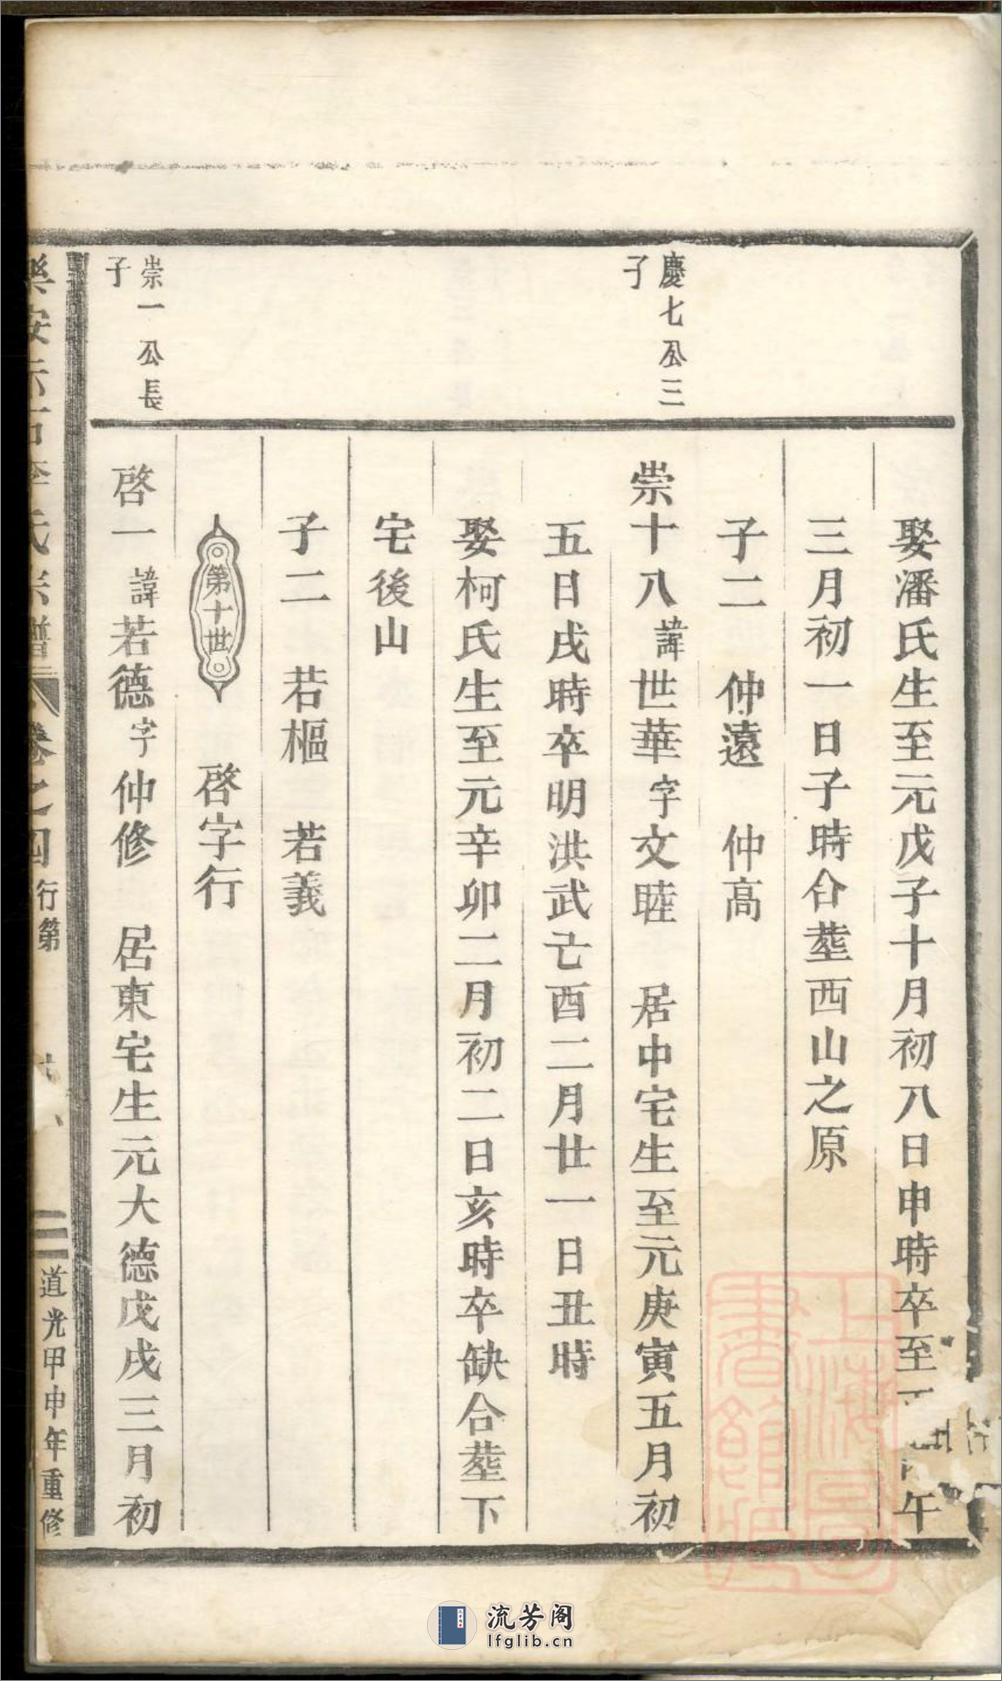 娶潘氏生至元戊子十月初八日申時卒至午
三月初一日子時合塟西山之原
子二　仲遠　仲高
慶七公三
子
崇十八諱世華字文睦　居中宅生至元庚寅五月初
五日戌時卒明洪武己酉二月廿一日丑時
娶柯氏生至元辛卯二月初二日亥時卒缺合塟下
宅後山
子二　若樞　若義
第十世
啓字行
崇一公長
子
啓一諱若德字仲修　居東宅生元大德戊戌三月初
樂安示石李氏宗譜
卷之四
行第
道光甲申年重修
上海圖書館藏
流芳阁
lfglib.cn